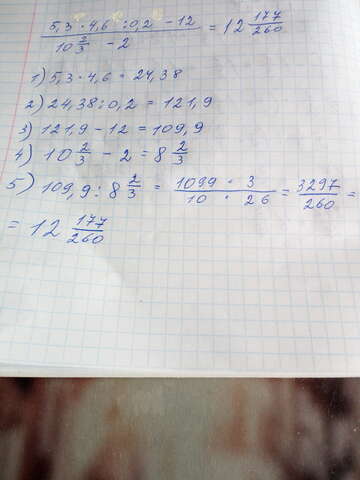 5,3 · 4,6 : 0,2 - 12 / 10 2/3 - 2 = 12 177/260
1) 5,3 · 4,6 = 24,38
2) 24,38 : 0,2 = 121,9
3) 121,9 - 12 = 109,9
4) 10 2/3 - 2 = 8 2/3
5) 109,9 : 8 2/3 = 1099 · 3 / 10 · 26 = 3297/260 =
= 12 177/260